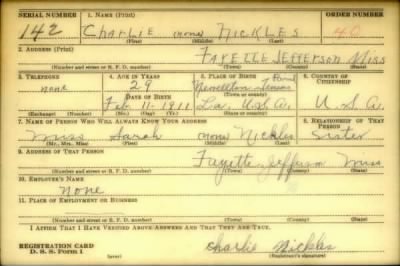 SERIAL NUMBER 1. NAME (Print) ORDER NUMBER
142 CHARLIE (none) NICKLES 40
(First) (Middle) (Last)
2. ADDRESS (Print)
FAYELLE JEFFERSON MISS
(Number and street or R. F. D. number) (Town) (County) (State)
3. TELEPHONE 4. AGE IN YEARS 5. PLACE OF BIRTH 6. COUNTRY OF CITIZENSHIP
none 29 Newellton Tensas Parish
DATE OF BIRTH (Town or county)
Feb. 11 1911 La. U.S.A. U.S.A.
(Exchange) (Number) (Mo.) (Day) (Yr.) (State or country)
7. NAME OF PERSON WHO WILL ALWAYS KNOW YOUR ADDRESS 8. RELATIONSHIP OF THAT PERSON
Miss Sarah (none) Nickles Sister
(Mr., Mrs., Miss) (First) (Middle) (Last)
9. ADDRESS OF THAT PERSON
Fayette Jefferson Miss
(Number and street or R. F. D. number) (Town) (County) (State)
10. EMPLOYER'S NAME
None
11. PLACE OF EMPLOYMENT OR BUSINESS
(Number and street or R. F. D. number) (Town) (County) (State)
I AFFIRM THAT I HAVE VERIFIED ABOVE ANSWERS AND THAT THEY ARE TRUE.
REGISTRATION CARD
D. S. S. Form 1 Charlie Nickles
(Registrant's signature)